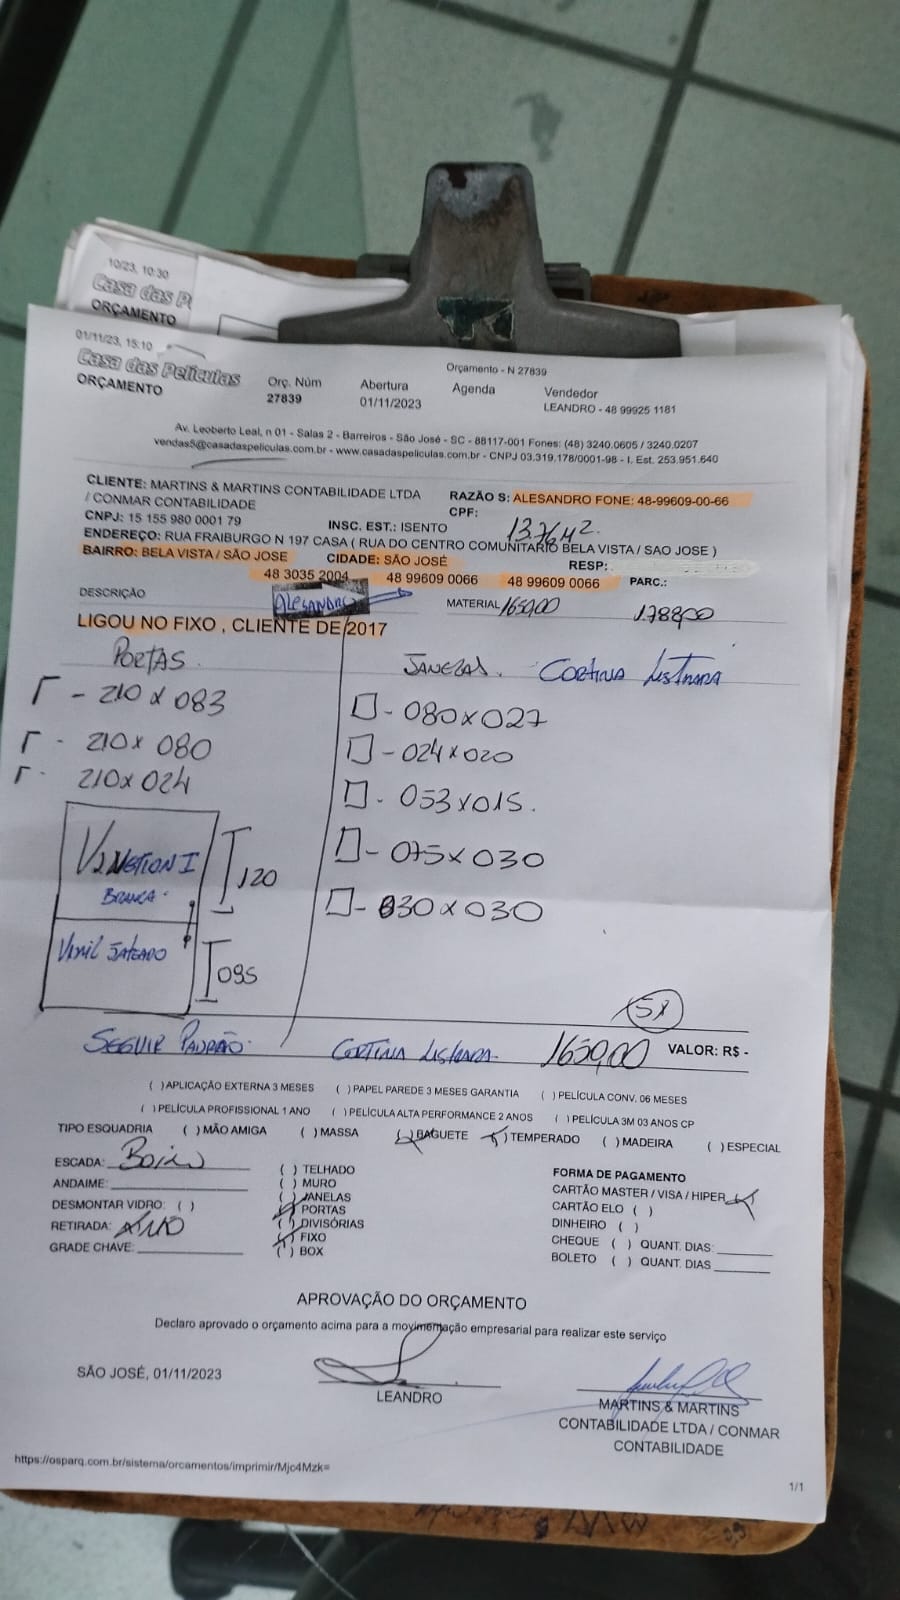 10/23, 10:30
Casa das P
ORÇAMENTO
01/11/23, 15:10
Orçamento - N 27839
Casa das Películas
ORÇAMENTO
Orç. Núm
27839
Abertura
01/11/2023
Agenda
Vendedor
LEANDRO - 48 99925 1181
Av. Leoberto Leal, n 01 - Salas 2 - Barreiros - São José - SC - 88117-001 Fones: (48) 3240.0605 / 3240.0207
vendas5@casadaspeliculas.com.br - www.casadaspeliculas.com.br - CNPJ 03.319.178/0001-98 - I. Est. 253.951.640
CLIENTE: MARTINS & MARTINS CONTABILIDADE LTDA
/ CONMAR CONTABILIDADE
RAZÃO S: ALESANDRO FONE: 48-99609-00-66
CPF:
CNPJ: 15 155 980 0001 79
INSC. EST.: ISENTO
13.76M2
ENDEREÇO: RUA FRAIBURGO N 197 CASA ( RUA DO CENTRO COMUNITARIO BELA VISTA / SAO JOSE )
BAIRRO: BELA VISTA / SÃO JOSE
CIDADE: SÃO JOSÉ
RESP:
48 3035 2004
48 99609 0066
48 99609 0066
PARC.:
DESCRIÇÃO
ALESANDRO
MATERIAL 1650,00
1.788,00
LIGOU NO FIXO , CLIENTE DE 2017
PORTAS
JANELAS. CORTINA LISTRADA
- 210 x 083
- 210 x 080
- 210 x 024
- 080 x 027
- 024 x 020
- 053 x 015.
- 075 x 030
- 030 x 030
BRANCA
120
VINIL JATEADO
095
5x
SEGUIR PADRÃO
CORTINA LISTRADA
1650,00
VALOR: R$ -
( ) APLICAÇÃO EXTERNA 3 MESES ( ) PAPEL PAREDE 3 MESES GARANTIA ( ) PELÍCULA CONV. 06 MESES
( ) PELÍCULA PROFISSIONAL 1 ANO ( ) PELÍCULA ALTA PERFORMANCE 2 ANOS ( ) PELÍCULA 3M 03 ANOS CP
TIPO ESQUADRIA ( ) MÃO AMIGA ( ) MASSA (x) BAGUETE (x) TEMPERADO ( ) MADEIRA ( ) ESPECIAL
ESCADA:
ANDAIME:
DESMONTAR VIDRO: ( )
RETIRADA:
GRADE CHAVE:
( ) TELHADO
( ) MURO
( ) JANELAS
(x) PORTAS
( ) DIVISÓRIAS
(x) FIXO
( ) BOX
FORMA DE PAGAMENTO
CARTÃO MASTER / VISA / HIPER (x)
CARTÃO ELO ( )
DINHEIRO ( )
CHEQUE ( ) QUANT. DIAS:
BOLETO ( ) QUANT. DIAS
APROVAÇÃO DO ORÇAMENTO
Declaro aprovado o orçamento acima para a movimentação empresarial para realizar este serviço
SÃO JOSÉ, 01/11/2023
LEANDRO
MARTINS & MARTINS
CONTABILIDADE LTDA / CONMAR
CONTABILIDADE
https://osparq.com.br/sistema/orcamentos/imprimir/Mjc4Mzk=
1/1